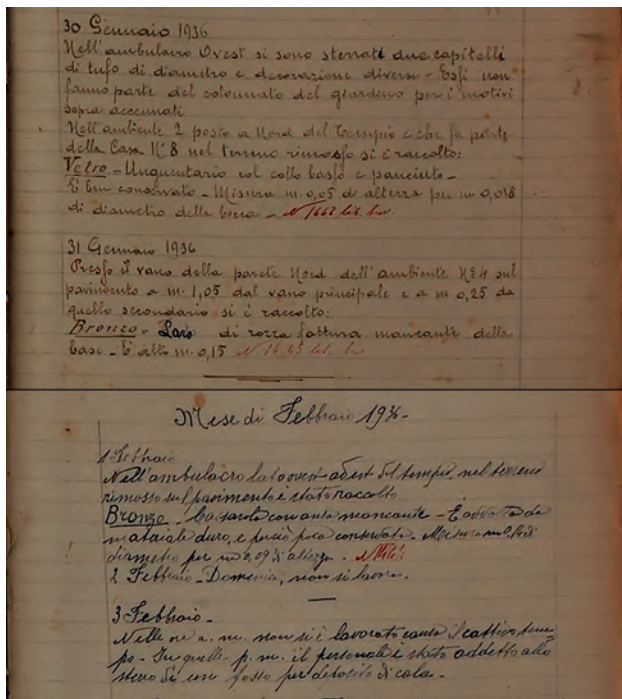 30 Gennaio 1936
Nell'ambulacro Ovest si sono sterrati due capitelli
di tufo di diametro e decorazione diversi - Essi non
fanno parte del colonnato del giardino per i motivi
sopra accennati
Nell'ambiente 2 posto a Nord del Tempio e che fa parte
della Casa N° 8 nel terreno rimosso si è raccolto:
Vetro - Unguentario col collo basso e panciuto -
È ben conservato - Misura m. 0,05 di altezza per m. 0,018
di diametro della bocca -
31 Gennaio 1936
Presso il vano della parete Nord dell'ambiente N° 4 sul
pavimento a m. 1,05 dal vano principale e a m 0,25 da
quello secondario si è raccolto:
Bronzo - Lare di rozza fattura mancante della
base - È alto m. 0,15
Mese di Febbraio 1936 -
1 Febbraio
Nell'ambulacro lato ovest ad est del tempio, nel terreno
rimosso sul pavimento è stato raccolto
Bronzo - Casarola con ansa mancante - È
materiale duro, e perciò poco conservata. Misura m 0,
diametro per m 0,09 di altezza.
2 Febbraio - Domenica, non si lavora.
3 Febbraio -
Nelle ore a. m. non si è lavorato causa il cattivo tem-
po - In quelle p. m. il personale è stato addetto allo
sterro di una fosso per deposito di cala.